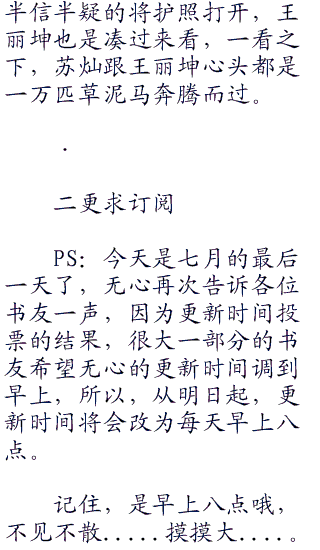 半信半疑的将护照打开，王
丽坤也是凑过来看，一看之
下，苏灿跟王丽坤心头都是
一万匹草泥马奔腾而过。
.
二更求订阅
PS：今天是七月的最后
一天了，无心再次告诉各位
书友一声，因为更新时间投
票的结果，很大一部分的书
友希望无心的更新时间调到
早上，所以，从明日起，更
新时间将会改为每天早上八
点。
记住，是早上八点哦，
不见不散.....摸摸大....。